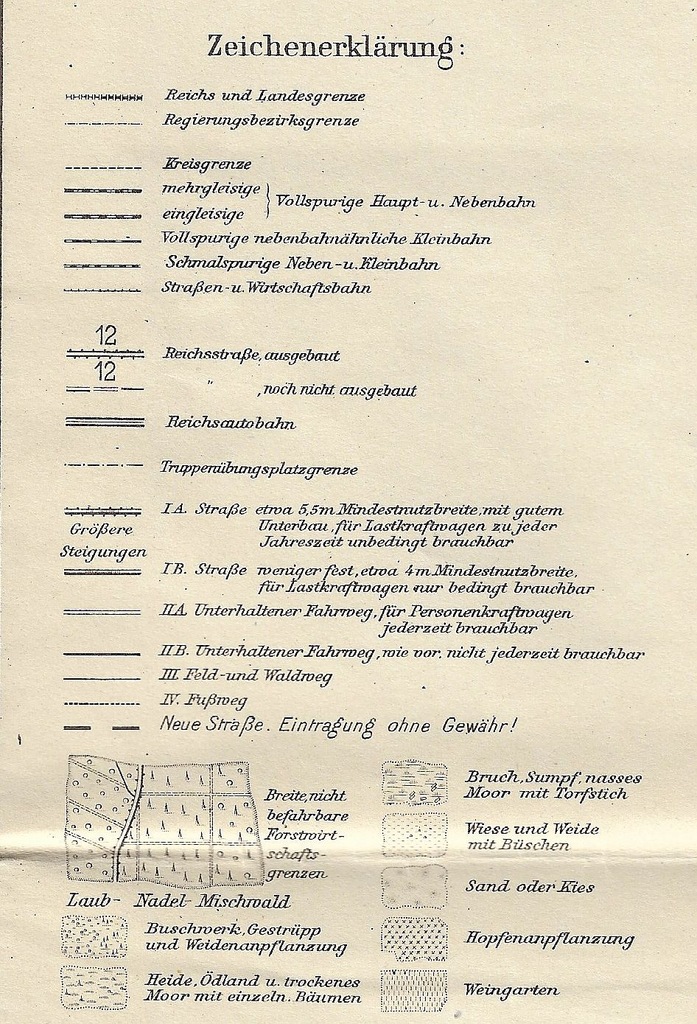 Zeichenerklärung:
Reichs und Landesgrenze
Regierungsbezirksgrenze
Kreisgrenze
mehrgleisige
eingleisige
Vollspurige Haupt-u. Nebenbahn
Vollspurige nebenbahnähnliche Kleinbahn
Schmalspurige Neben-u. Kleinbahn
Straßen-u. Wirtschaftsbahn
12
Reichsstraße, ausgebaut
12
" , noch nicht ausgebaut
Reichsautobahn
Truppenübungsplatzgrenze
I A. Straße etwa 5,5m Mindestnutzbreite, mit gutem
Unterbau, für Lastkraftwagen zu jeder
Jahreszeit unbedingt brauchbar
Größere
Steigungen
I B. Straße weniger fest, etwa 4m Mindestnutzbreite,
für Lastkraftwagen nur bedingt brauchbar
II A. Unterhaltener Fahrweg, für Personenkraftwagen
jederzeit brauchbar
II B. Unterhaltener Fahrweg, wie vor, nicht jederzeit brauchbar
III. Feld-und Waldweg
IV. Fußweg
Neue Straße. Eintragung ohne Gewähr!
Breite, nicht
befahrbare
Forstwirt-
schafts-
grenzen
Laub- Nadel- Mischwald
Buschwerk, Gestrüpp
und Weidenanpflanzung
Heide, Ödland u. trockenes
Moor mit einzeln. Bäumen
Bruch, Sumpf, nasses
Moor mit Torfstich
Wiese und Weide
mit Büschen
Sand oder Kies
Hopfenanpflanzung
Weingarten